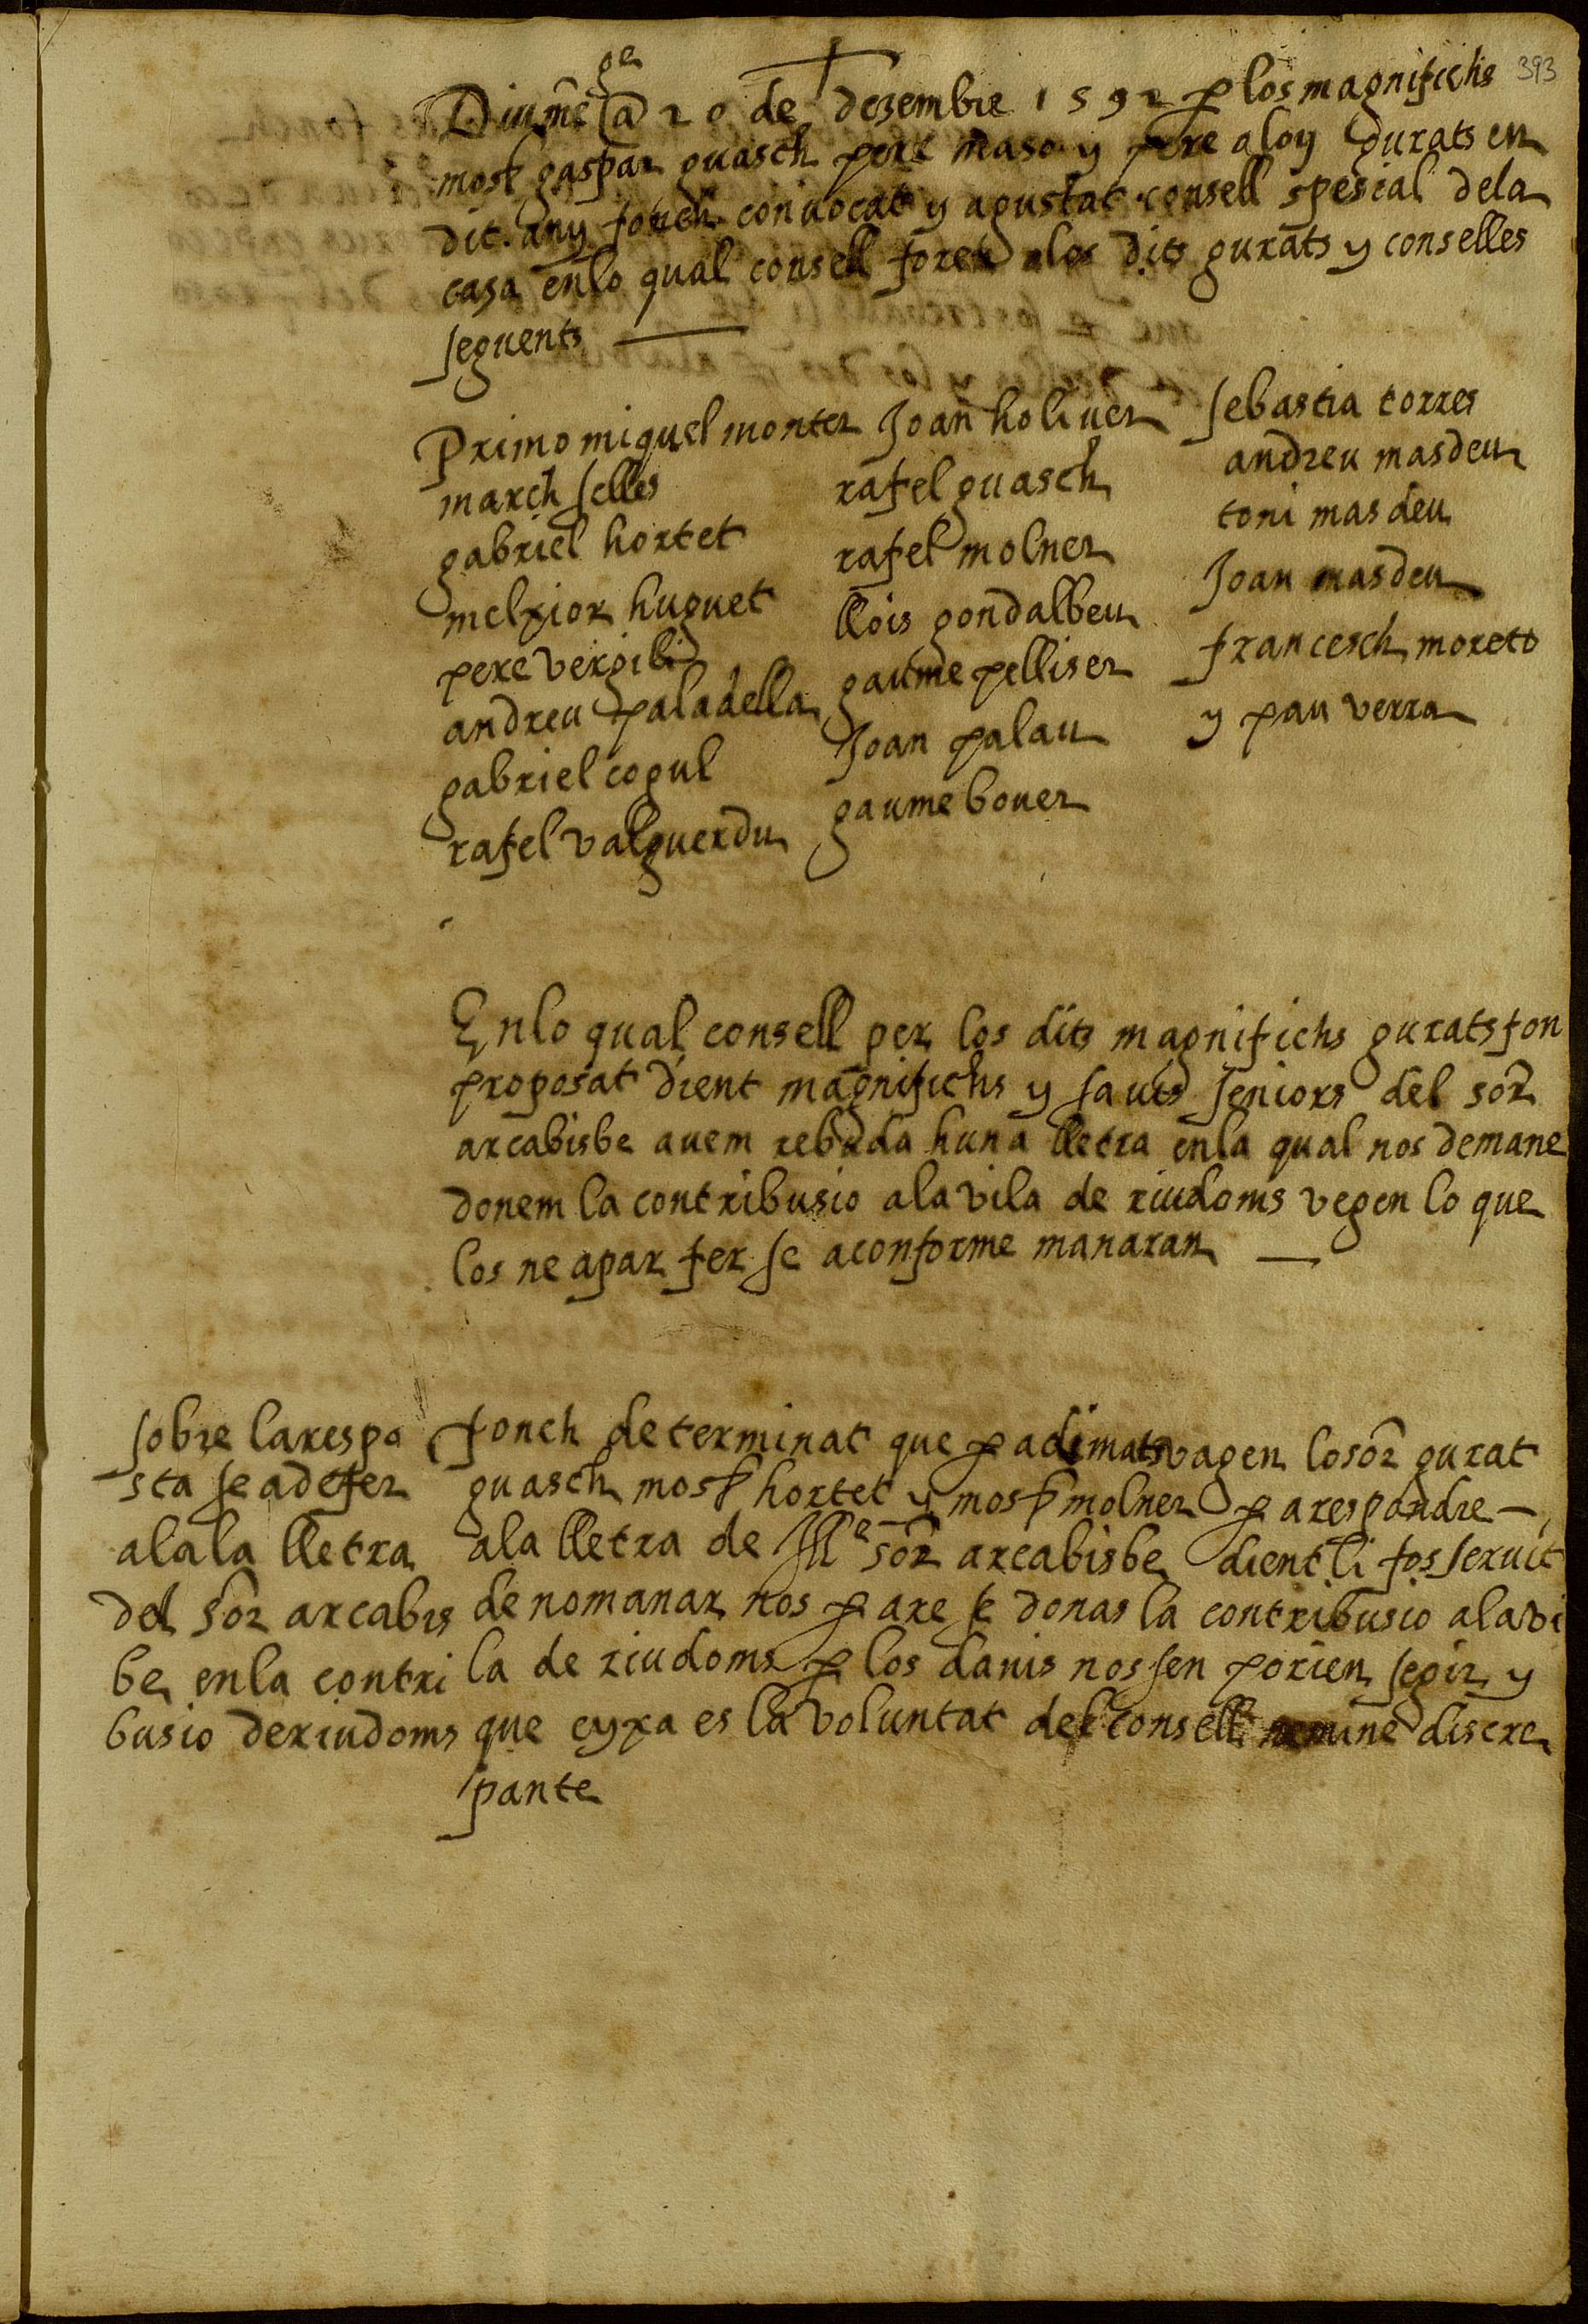 393
Diumēge a 20 de dezembre 1592 p los magnifichs
mosr gaspar guasch pere maso y pere aloy gurats en
dit any fonch conuocat y agustat consell spesial dela
casa enlo qual consell foren los dits gurats y conselles
seguents
Primo miquel monter
march selles
gabriel hortet
melxior huguet
pere vergili
andreu paladella
gabriel cogul
rafel valguerdu
Joan holiuer
rafel guasch
rafel molner
llois gondalbeu
gaume pelliser
Joan palau
gaume bouer
sebastia torres
andreu masdeu
toni masdeu
Joan masdeu
francesch moreto
y pau verra
Enlo qual consell per los dits magnifichs gurats fon
proposat dient magnifichs y sauis seniors del sor
arcabisbe auem rebuda huna lletra enla qual nos demane
donem la contribusio ala vila de riudoms vegen lo que
los ne apar fer se a conforme manaran
sobre la respo
sta se a de fer
ala la lletra
del sor arcabis
be enla contri
busio de riudoms
fonch determinat que p adimats vagen lo sor gurat
guasch mosr hortet y mosr molner p a respondre
ala lletra de Ille sor arcabisbe dient li fos seruit
de no manar nos p are se donas la contribusio ala vi
la de riudoms p los danis nos sen porien segir y
que eyxa es la voluntat del consell nemine discre
pante